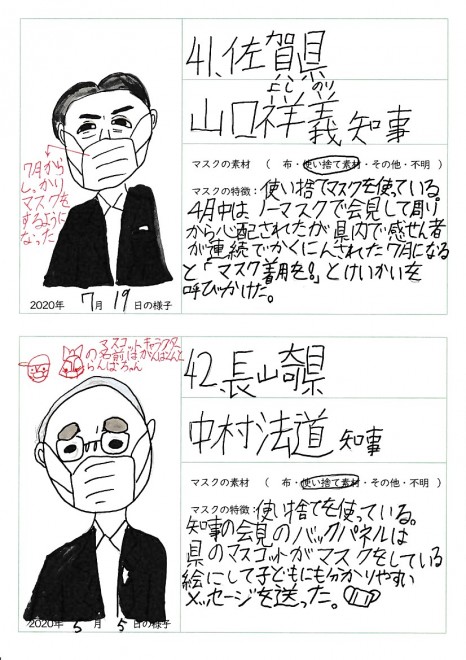 41.佐賀県
よし のり
山口祥義 知事
マスクの素材 ( 布・使い捨て素材・その他・不明 )
マスクの特徴:使い捨てマスクを使っている。
4月中はノーマスクで会見して周り
から心配されたが県内で感せん者
が連続でかくにんされた7月になる
と「マスク着用を!」とけいかいを
呼びかけた。
7月から
しっかり
マスクを
するように
なった
2020年 7月 19日の様子
マスコットキャラクター
の名前はがんばくんと
らんばちゃん
42.長崎県
中村法道 知事
マスクの素材 ( 布・使い捨て素材・その他・不明 )
マスクの特徴:使い捨てを使っている。
知事の会見のバックパネルは
県のマスコットがマスクをしている
絵にして子どもにも分かりやすい
メッセージを送った。
2020年 5月 5日の様子